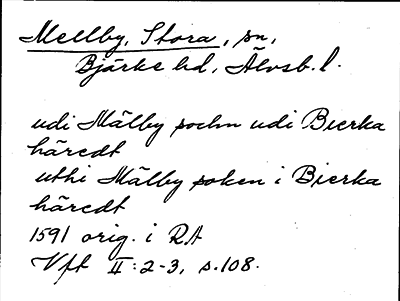 Mellby, Stora, sn,
Bjärke hd, Älvsb. l.
udi Mälby sochn udi Bierka
häredt
uthi Mälby soken i Bierka
häredt
1591 orig. i RA
Vft II: 2-3, s. 108.